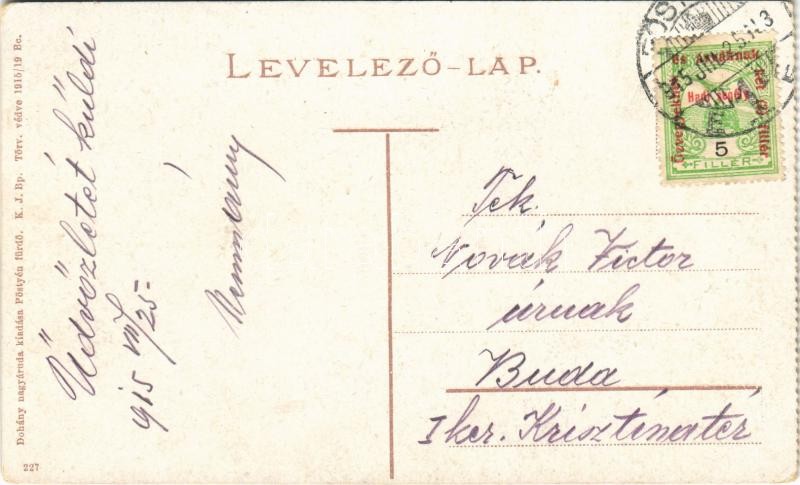 LEVELEZŐ-LAP.
Üdvözletet küldi
915 VII/25-
Tek.
Novák Victor
úrnak
Buda
I ker. Krisztinatér
Özvegyeknek
és árváknak
két (2) fillér
Hadi segély
5
FILLÉR
Dohány nagyáruda kiadása Pöstyén fürdő. K. J. Bp. Törv. védve 1915/19 Bc.
227